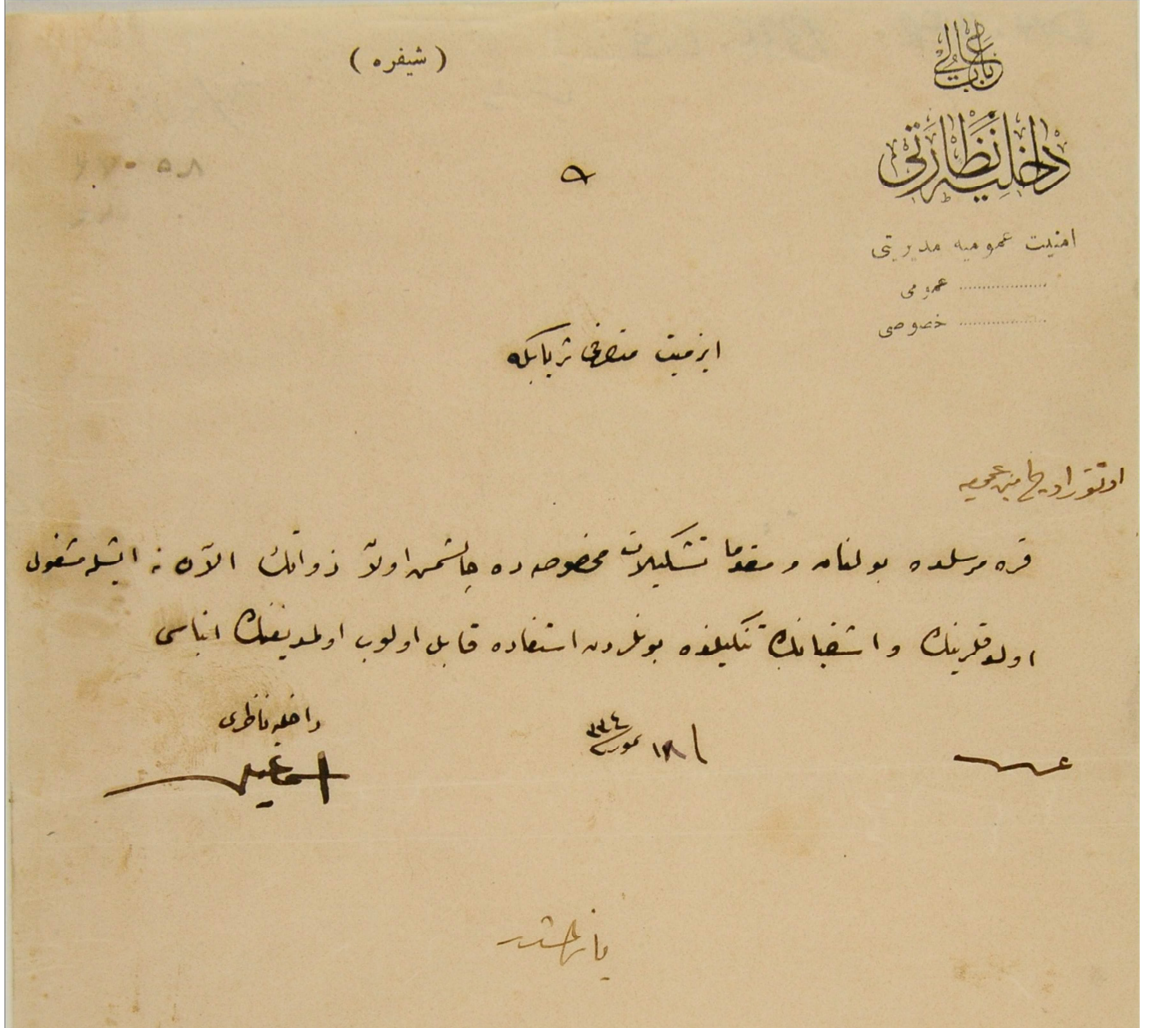 باب عالی
داخلیه نظارتی
امنیت عمومیه مدیریتی
عمومی
خصوصی
( شیفره )
ازمیت متصرفی ثریا بکه
قره مرسلده بولنان و مقدما تشکیلات مخصوصه ده چالشمش اولان ذواتك الآن نه ایشله مشغول
اولدقلرینك و اشقیانك تنکیلنده بونلردن استفاده قابل اولوب اولمدیغنك انباسی
داخلیه ناظری
اسماعیل
١٨ تموز ٣٣٤
یازلمشدر